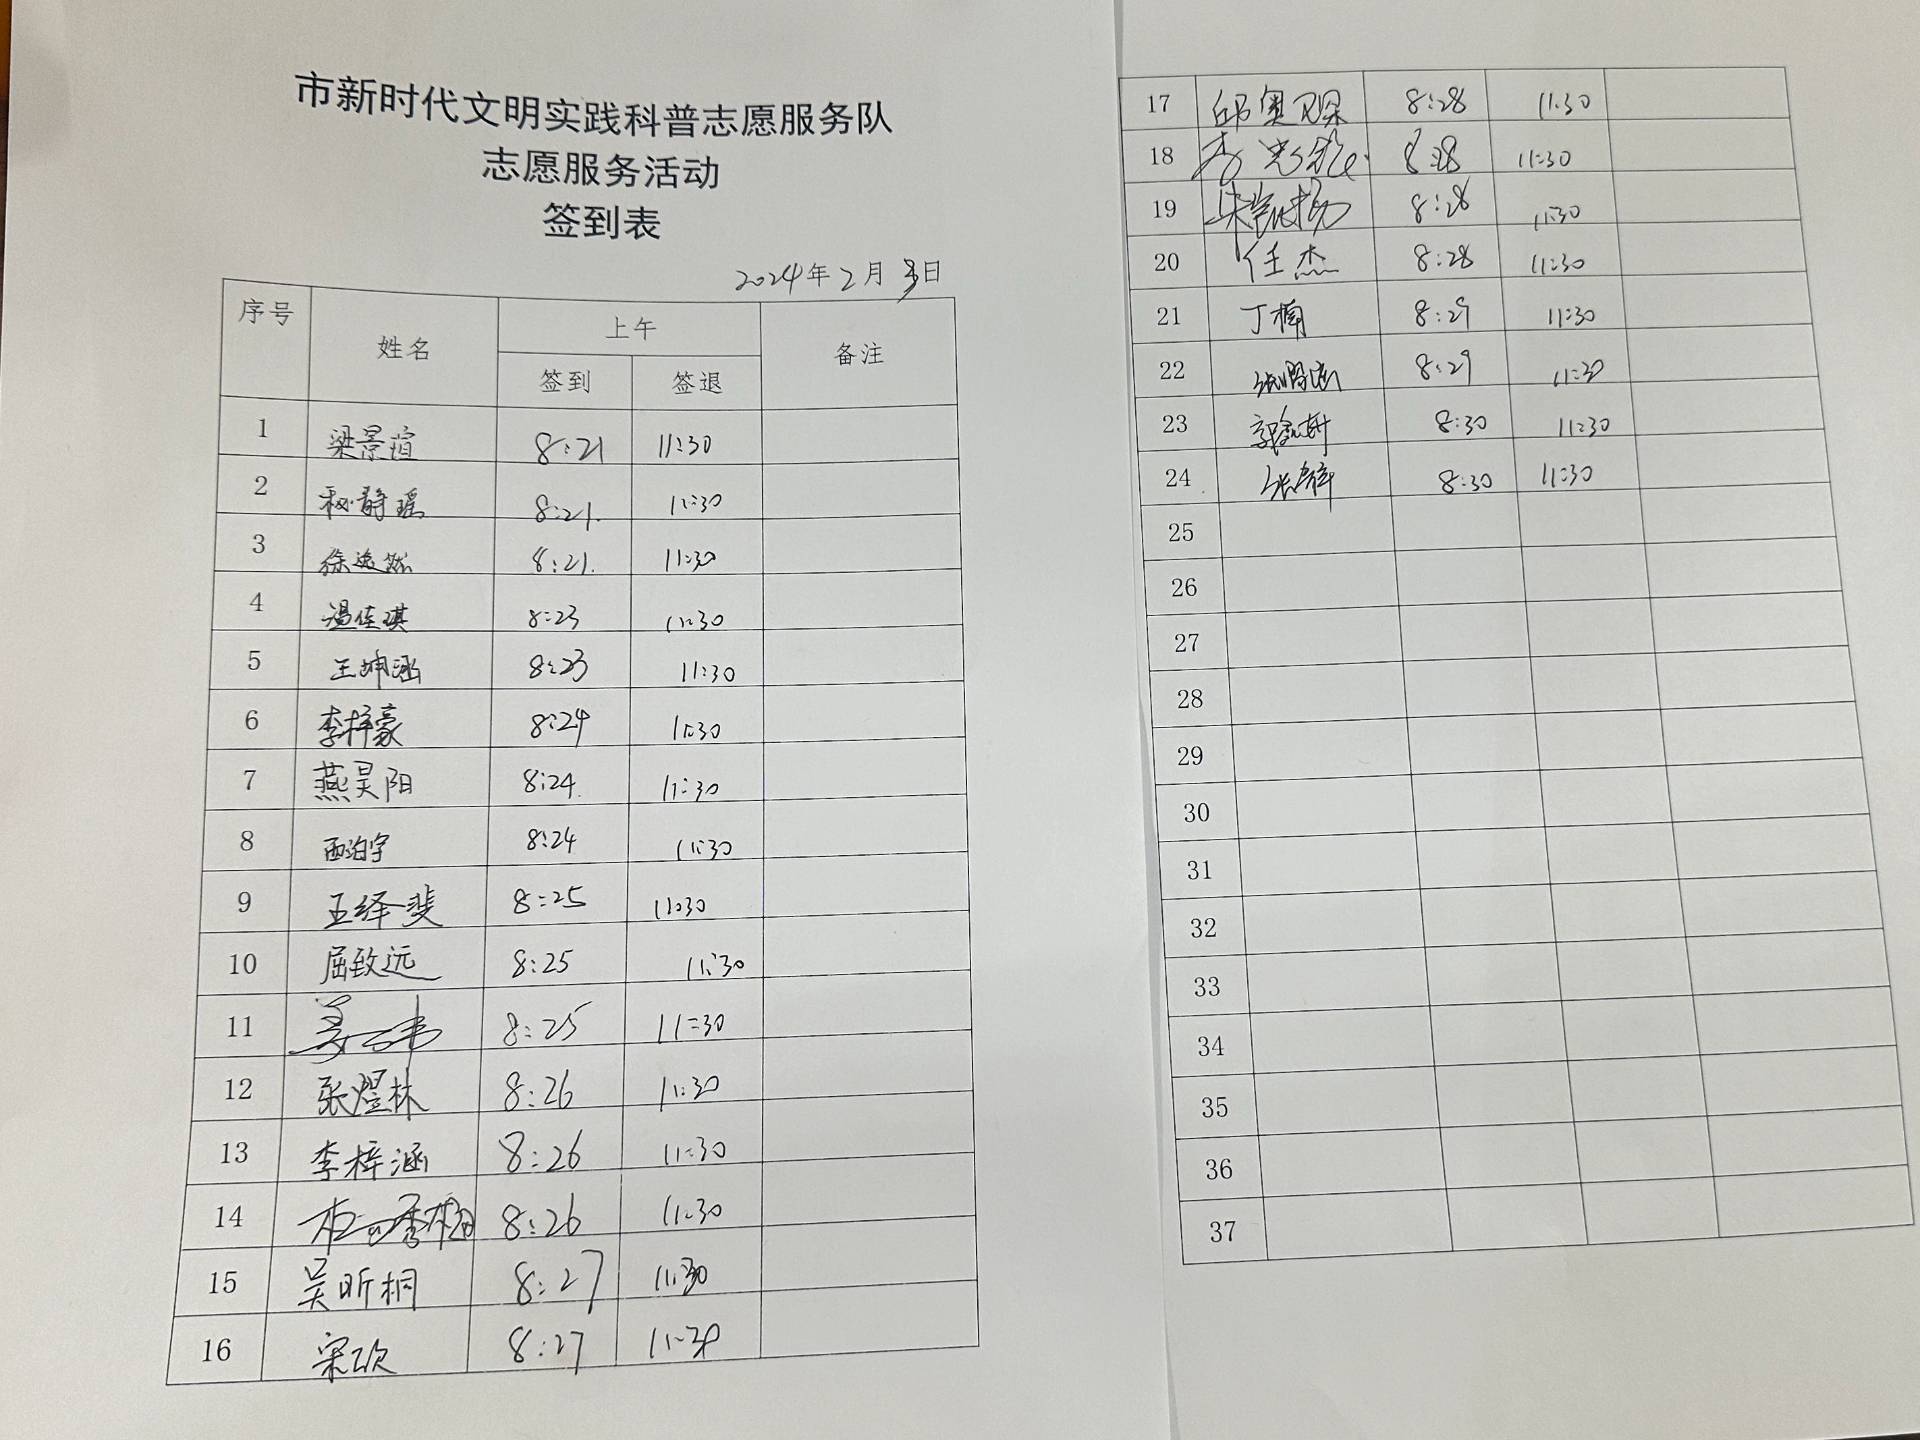 市新时代文明实践科普志愿服务队
志愿服务活动
签到表
2024年2月3日
序号 姓名 上午 备注
签到 签退
1 梁景瑄 8:21 11:30
2 秘静瑶 8:21. 11:30
3 徐逸然 8:21. 11:30
4 温佳琪 8:23 11:30
5 王坤涵 8:23 11:30
6 李梓豪 8:24 11:30
7 燕昊阳 8:24. 11:30
8 西泊宇 8:24 11:30
9 王绎斐 8:25 11:30
10 屈致远 8:25 11:30
11 8:25 11:30
12 张煜林 8:26 11:30
13 李梓涵 8:26 11:30
14 8:26 11:30
15 吴昕桐 8:27 11:30
16 宋欣 8:27 11:30
17 邱奥琛 8:28 11:30
18 李 8:28 11:30
19 朱凯扬 8:28 11:30
20 任杰 8:28 11:30
21 丁楠 8:29 11:30
22 张 8:29 11:30
23 郭鑫妍 8:30 11:30
24 张 8:30 11:30
25
26
27
28
29
30
31
32
33
34
35
36
37